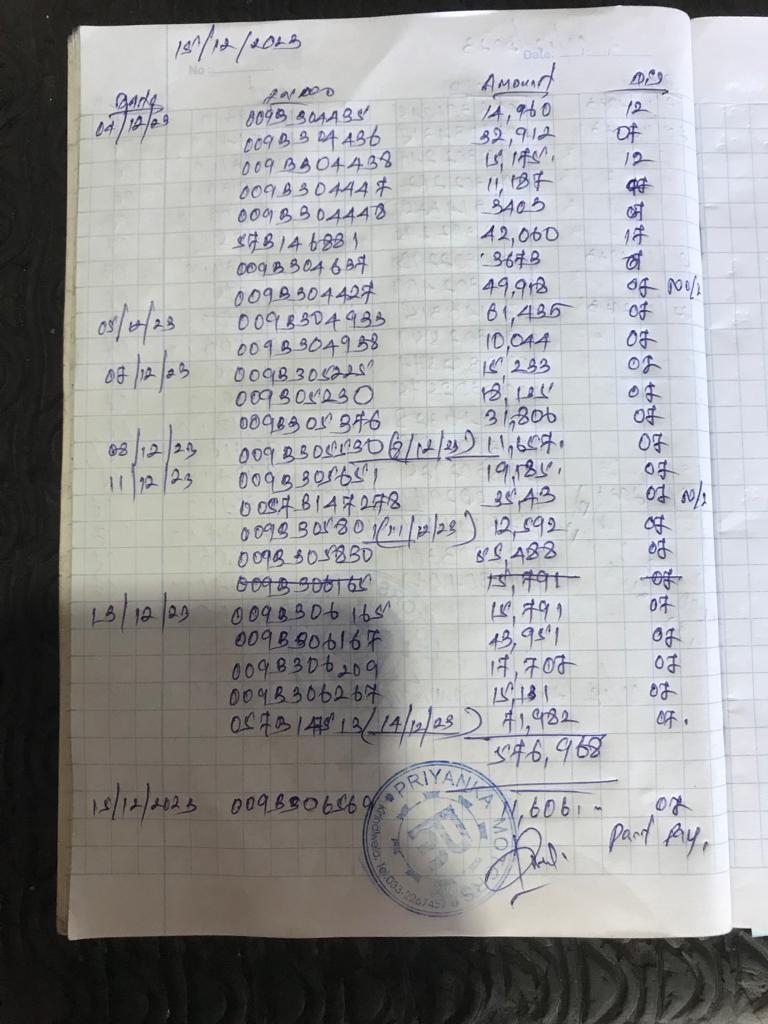 15/12/2023
No: Date:
Date Amount Dis
04/12/23 009B304435 14,960 12
009B304436 32,912 07
009B304438 15,175. 12
009B304447 11,187 07
009B304448 3403 07
57B146881 42,060 17
009B304637 3673 07
009B304427 49,918 07
05/12/23 009B304933 61,435 07
009B304938 10,044 07
07/12/23 009B305225 15,233 07
009305230 18,125 07
009B305376 31,806 07
08/12/23 009B305530 (8/12/23) 11,657. 07
11/12/23 009B305651 19,185. 07
0057B147278 3543 07
009B30580 (11/12/23) 12,592 07
009B305830 55,488 07
009B306165 15,791 07
13/12/23 009B306165 15,791 07
009B306167 43,951 07
009B306209 17,707 07
009B306267 15,131 07
(14/12/23) 71,982 07.
576,968
15/12/2023 009B306569 07
Part Pay.
PRIYANKA MOTORS